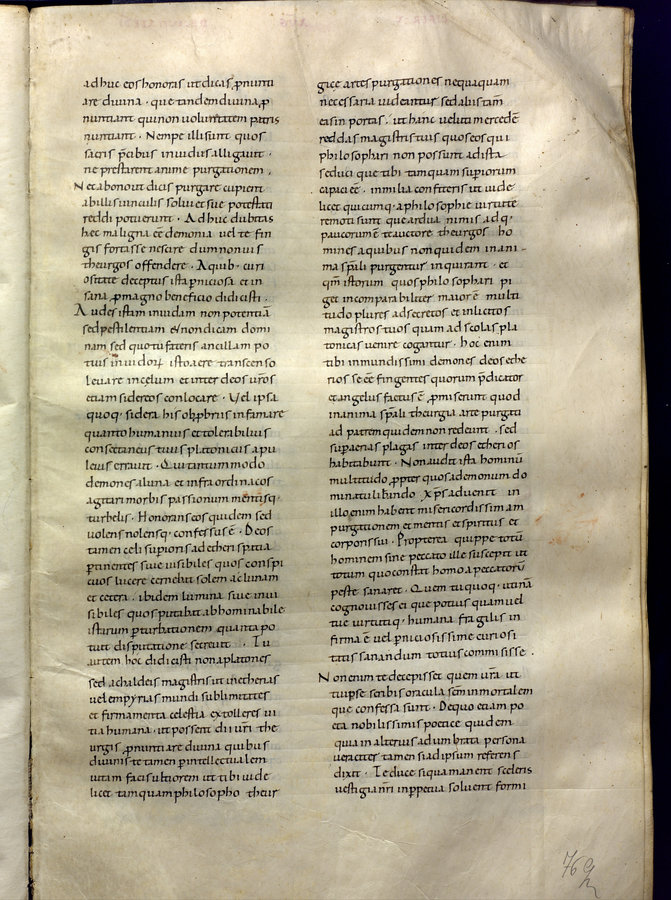 adhuc eos honoras ut dicas ꝓnunti
are diuina · que tandem diuina ꝓ
nuntiant qui non uoluntatem patris
nuntiant · Nempe illi sunt quos
sacris p̄cibus inuidus alligauit ·
ne prestarent anime purgationem ,
Nec a bono ut dicis purgare cupienti
ab illis uinculis solui et sue potestati
reddi potuerunt · Adhuc dubitas
hec maligna eē demonia uel te fin
gis fortasse nescire dum non uis
theurgos offendere · A quib· curi
ositate deceptus ista perniciosa et in
sana ꝓ magno beneficio didicisti ·
Audes istam inuidam non potentiā
sed pestilentiam & non dicam domi
nam sed quod tu fateris ancillam po
tius inuidoꝝ isto aere transcenso
leuare in celum et inter deos ur̄os
etiam sidereos conlocare · Uel ipsa
quoq· sidera his obprobriis infamare
quanto humanius et tolerabilius
consectaneus tuus platonicus apu
leius errauit · Qui tantummodo
demones a luna et infra ordinatos
agitari morbis passionum mentisq·
turbelis · Honorans eos quidem sed
uolens nolensq· confessus ē · Deos
tamen celi superiores ad etheri spatia
ꝑtinentes siue uisibiles quos conspi
cuos lucere cernebat solem ac lunam
et cetera · ibidem lumina siue inui
sibiles quos putabat ab hominabile
istarum ꝑturbationem quanta po
tuit disputatione secreuit · Tu
autem hoc didicisti non a platone s
sed a chaldeis magistris ut in etherias
uel empyrias mundi sublimitates
et firmamenta celestia extolleres ui
tia humana · ut possent dii ur̄i the
urgis ꝓnuntiare diuina quibus
diuinis te tamen ꝑ intellectualem
uitam facis altiorem ut tibi uide
licet tamquam philosopho theur
gice artes purgationes nequaquam
necessaria uideantur sed abis tam̄
eas inportas · ut hanc ueluti mercedē
reddas magistris tuis quos eos qui
philosophari non possunt ad ista
seduci que tibi tamquam supiorum
capaci eē · inutilia confiteris ut uide
licet quicumq· a philosophie uirtute
remoti sunt que ardua nimis ad q·
paucorum ē te auctore theurgos ho
mines a quibus non quidem in ani
ma sp̄ali purgentur inquirant · et
qm̄ istorum quos philosophari pi
get incomparabiliter maior ē multi
tudo plures ad secretos et inlicitos
magistros tuos quam ad scolas pla
tonicas uenire cogantur · hoc enim
tibi inmundissimi demones deos ethe
rios se eē fingentes quorum p̄dicator
et angelus factus ē ꝓmiserunt quod
in anima sp̄ali theurgia arte purgati
ad patrem quidem non redeunt · sed
sup aerias plagas inter deos etherios
habitabunt · Non audit ista hominū
multitudo ꝓpter quos a demonum do
minatu liberando xp̄s aduenit in
illo enim habent misericordissimam
purgationem et mentis et spiritus et
corporis sui · Propterea quippe totū
hominem sine peccato ille suscepit ut
totum quo constat homo a peccatorū
peste sanaret · Quem tu quoq· utinā
cognouisses ei que potius quam uel
tue uirtutiq· humana fragilis in
firma ē uel pniciosissime curiosi
tatis sanandum totius commisisse .
Non enim te decepisset quem ur̄a ut
tu ipse scribis oracula scm̄ inmortalem
que confessa sunt · De quo etiam po
eta nobilissimus poetice quidem
quia in alterius adumbrata persona
ueraciter tamen si ad ipsum referens
dixit · Te duce si qua manent sceleris
uestigia nr̄i inꝑpetua soluent formi
76